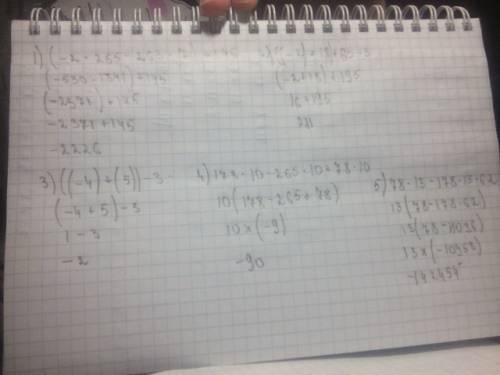 1) (-2 · 265 - 263 · 7) + 145
(-530 - 1841) + 145
(-2371) + 145
-2371 + 145
-2226
(-2+18) + 195
16 + 195
211
3) ((-4) + (5)) - 3
(-4 + 5) - 3
1 - 3
-2
4) 178 · 10 - 265 · 10 + 78 · 10
10(178 - 265 + 78)
10 × (-9)
-90
5) 78 · 13 - 178 · 13 · 62
13(78 - 178 · 62)
13(78 - 11036)
13 × (-10958)
-142454